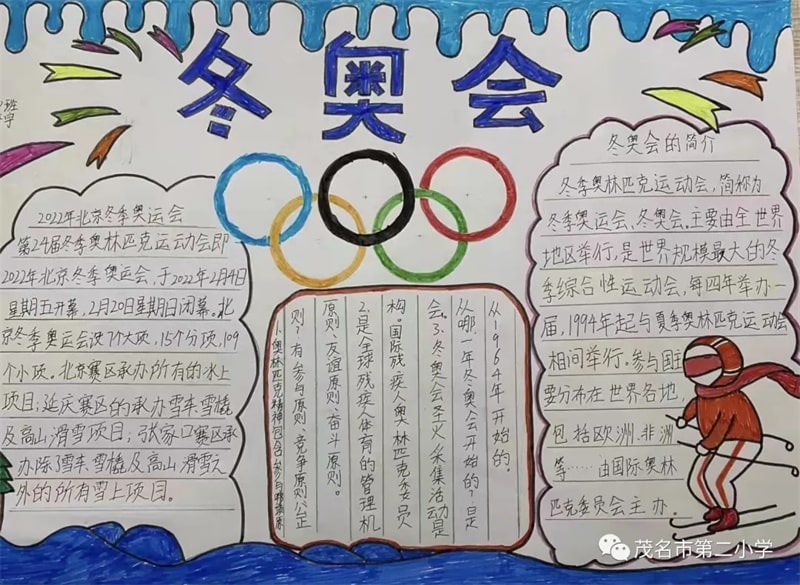 班
冬奥会
2022年北京冬季奥运会
第24届冬季奥林匹克运动会即
2022年北京冬季奥运会,于2022年2月4日
星期五开幕,2月20日星期日闭幕。北
京冬季奥运会设7个大项,15个分项,109
个小项。北京赛区承办所有的冰上
项目;延庆赛区的承办雪车、雪橇
及高山滑雪项目;张家口赛区承
办除雪车、雪橇及高山滑雪之
外的所有雪上项目。
奥林匹克精神包含参与哪些原
则?有参与原则、竞争原则、公正
原则、友谊原则、奋斗原则。
2.是全球残疾人体育的管理机
构。国际残疾人奥林匹克委员
会。3.冬奥会圣火采集活动是
从哪一年冬奥会开始的?是
从1964年开始的。
冬奥会的简介
冬季奥林匹克运动会,简称为
冬季奥运会、冬奥会,主要由全世界
地区举行,是世界规模最大的冬
季综合性运动会,每四年举办一
届,1994年起与夏季奥林匹克运动会
相间举行。参与国主
要分布在世界各地,
包括欧洲、非洲
等……由国际奥林
匹克委员会主办。
茂名市第二小学